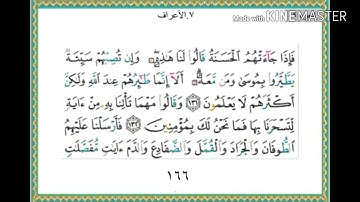 ٧-الأعراف
Made with KINEMASTER
فَإِذَا جَآءَتْهُمُ ٱلْحَسَنَةُ قَالُوا۟ لَنَا هَٰذِهِۦ ۖ وَإِن تُصِبْهُمْ سَيِّئَةٌ
يَطَّيَّرُوا۟ بِمُوسَىٰ وَمَن مَّعَهُۥٓ ۗ أَلَآ إِنَّمَا طَٰٓئِرُهُمْ عِندَ ٱللَّهِ وَلَٰكِنَّ
أَكْثَرَهُمْ لَا يَعْلَمُونَ ١٣١ وَقَالُوا۟ مَهْمَا تَأْتِنَا بِهِۦ مِنْ ءَايَةٍ
لِّتَسْحَرَنَا بِهَا فَمَا نَحْنُ لَكَ بِمُؤْمِنِينَ ١٣٢ فَأَرْسَلْنَا عَلَيْهِمُ
ٱلطُّوفَانَ وَٱلْجَرَادَ وَٱلْقُمَّلَ وَٱلضَّفَادِعَ وَٱلدَّمَ ءَايَٰتٍ مُّفَصَّلَٰتٍ
١٦٦